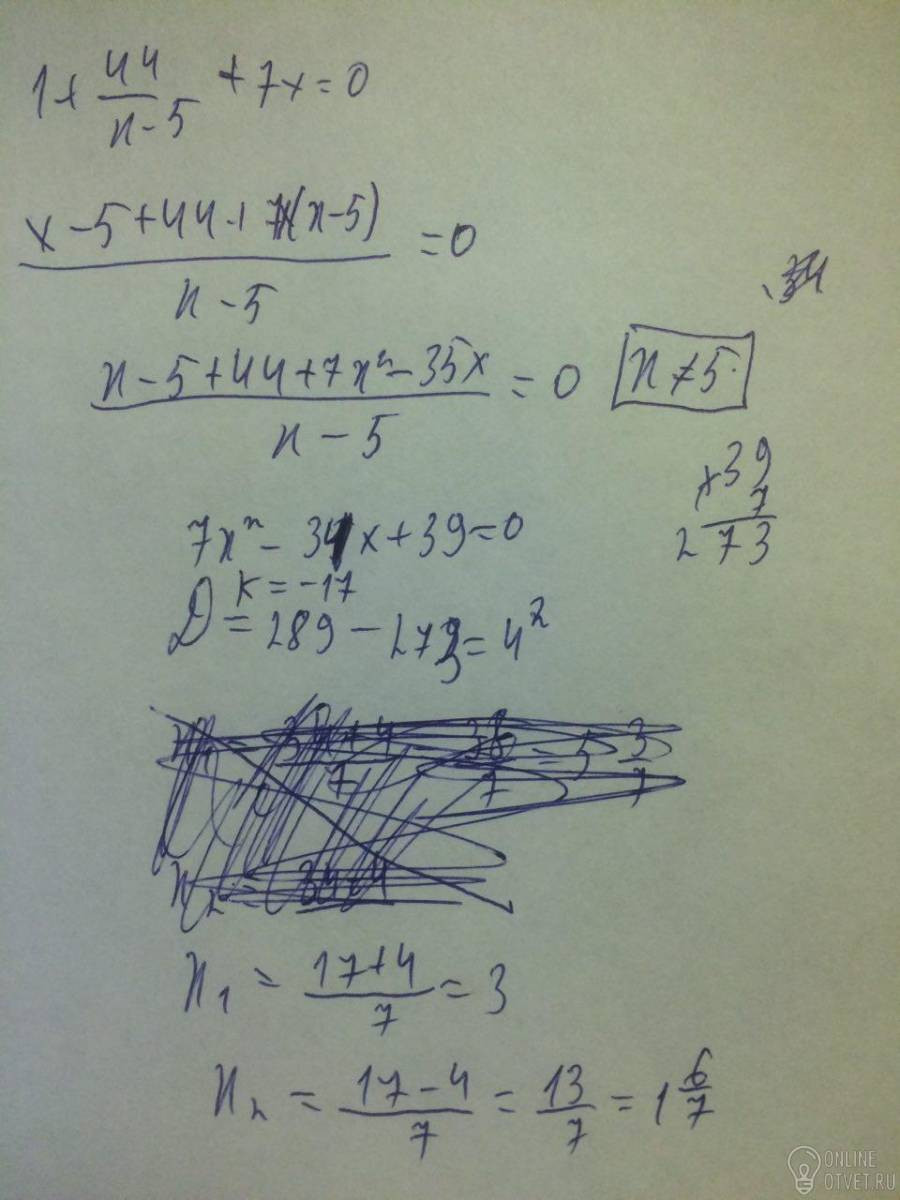 1+ 44/(x-5) +7x=0
(x-5+44+7x(x-5))/(x-5) =0
(x-5+44+7x²-35x)/(x-5) =0 x≠5
×39
7
273
7x²-34x+39=0
k=-17
D=289-273=4²
x₁ = (17+4)/7 = 3
x₂ = (17-4)/7 = 13/7 = 1 6/7
ONLINE
OTVET.RU